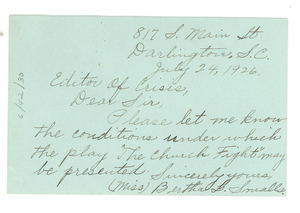 817 S. Main St.
Darlington, S.C.
July 24, 1926.
Editor of Crisis,
Dear Sir,
Please let me know
the conditions under which
the play "The Church Fight" may
be presented.
Sincerely yours,
(Miss) Bertha L. Smalls.